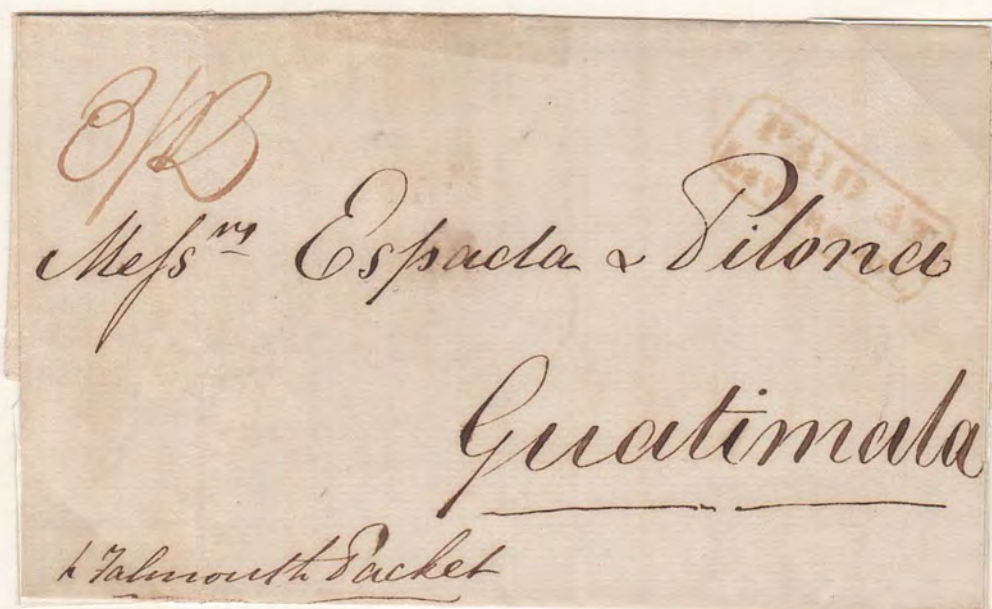 PAID AT
Messrs Espada & Pilona
Guatimala
Falmouth Packet